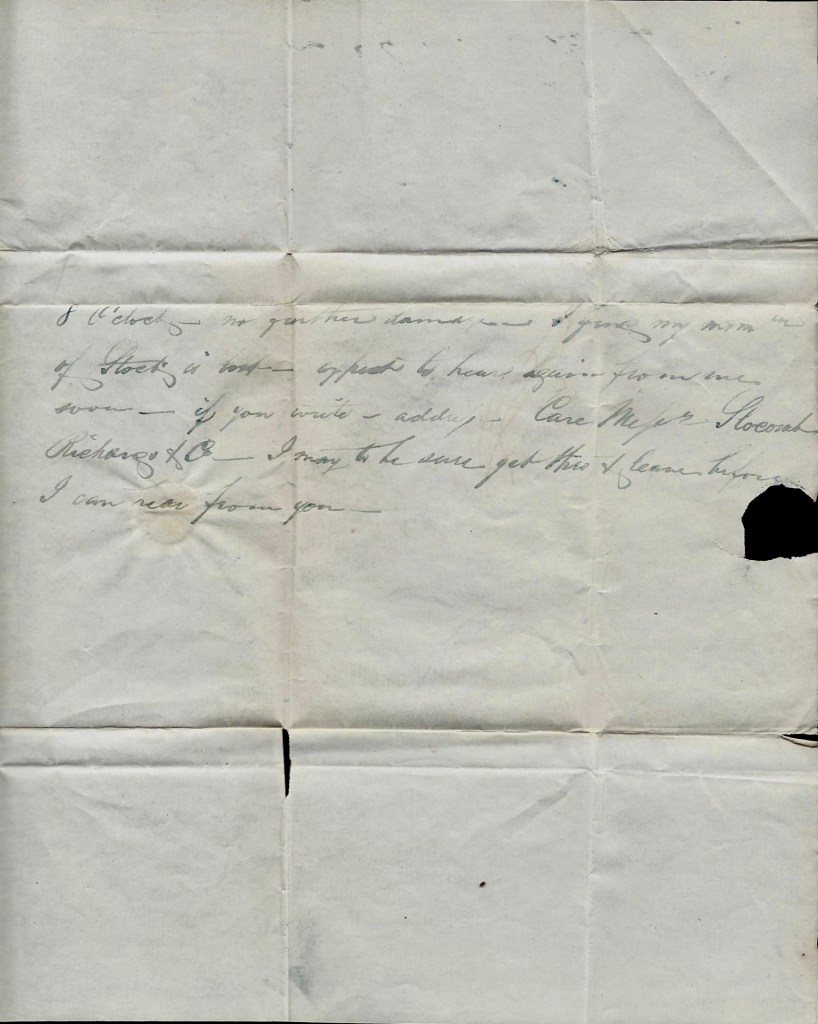 8 O'clock — no further damage — I give my mem
of Stock is lost — expect to hear again from me
soon — if you write — address — Care Messrs Slocomb
Richards & Co — I may to be sure get this & leave before
I can hear from you —